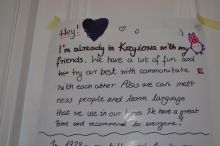 Hey!
I'm already in Krzyżowa with my
friends. We have a lot of fun and
try our best with communicate
with each other. Also we can meet
new people and learn language
that we use in our lives. We have a great
time and recommend to everyone!